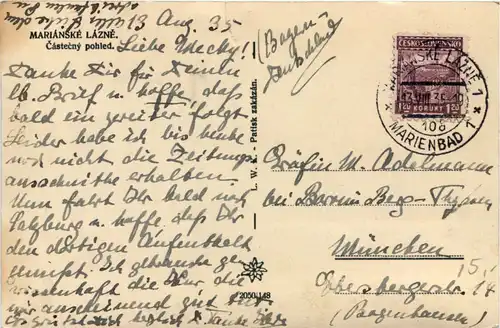 13 Aug. 35
MARIÁNSKÉ LÁZNĚ.
Částečný pohled.
Liebe Mecky!
Danke Dir für Deinen
lb. Brief u. hoffe, daß
bald ein zweiter folgt.
Leider habe ich bis heute
noch nicht die Zeitungs
ausschnitte erhalten.
Nun fahrt Ihr bald nach
Salzburg u. hoffe daß Ihr
den dortigen Aufenthalt
genießt. Ich gebrauche ge
wissenhaft die Kur die
mir anscheinend gut tut
L. W. K. - Patisk zakázán.
2050/148
(Bayern
Deutschland)
ČESKOSLOVENSKO
1.20 KORUNY 1.20
MARIÁNSKÉ LÁZNĚ 1
108
MARIENBAD 1
Gräfin M. Adelmann
bei Baronin Berg-
München
15
14
(Bogenhausen)